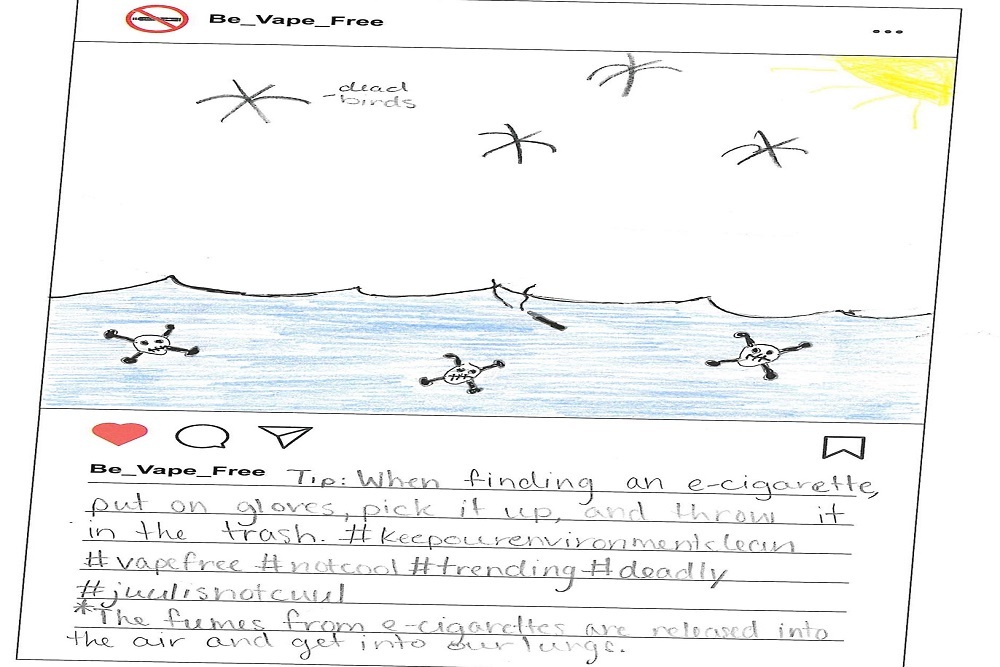 Be_Vape_Free
dead
-birds
Be_Vape_Free Tip: When finding an e-cigarette,
put on gloves, pick it up, and throw it
in the trash. #keepourenvironmentclean
#vapefree #notcool #trending #deadly
#juulisnotcuul
*The fumes from e-cigarettes are released into
the air and get into our lungs.